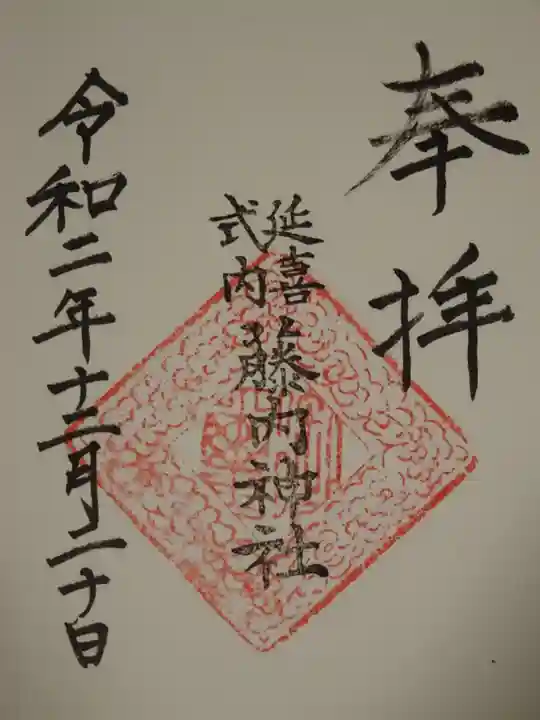 奉拝
延喜
式内
藤内神社
令和二年十二月二十日